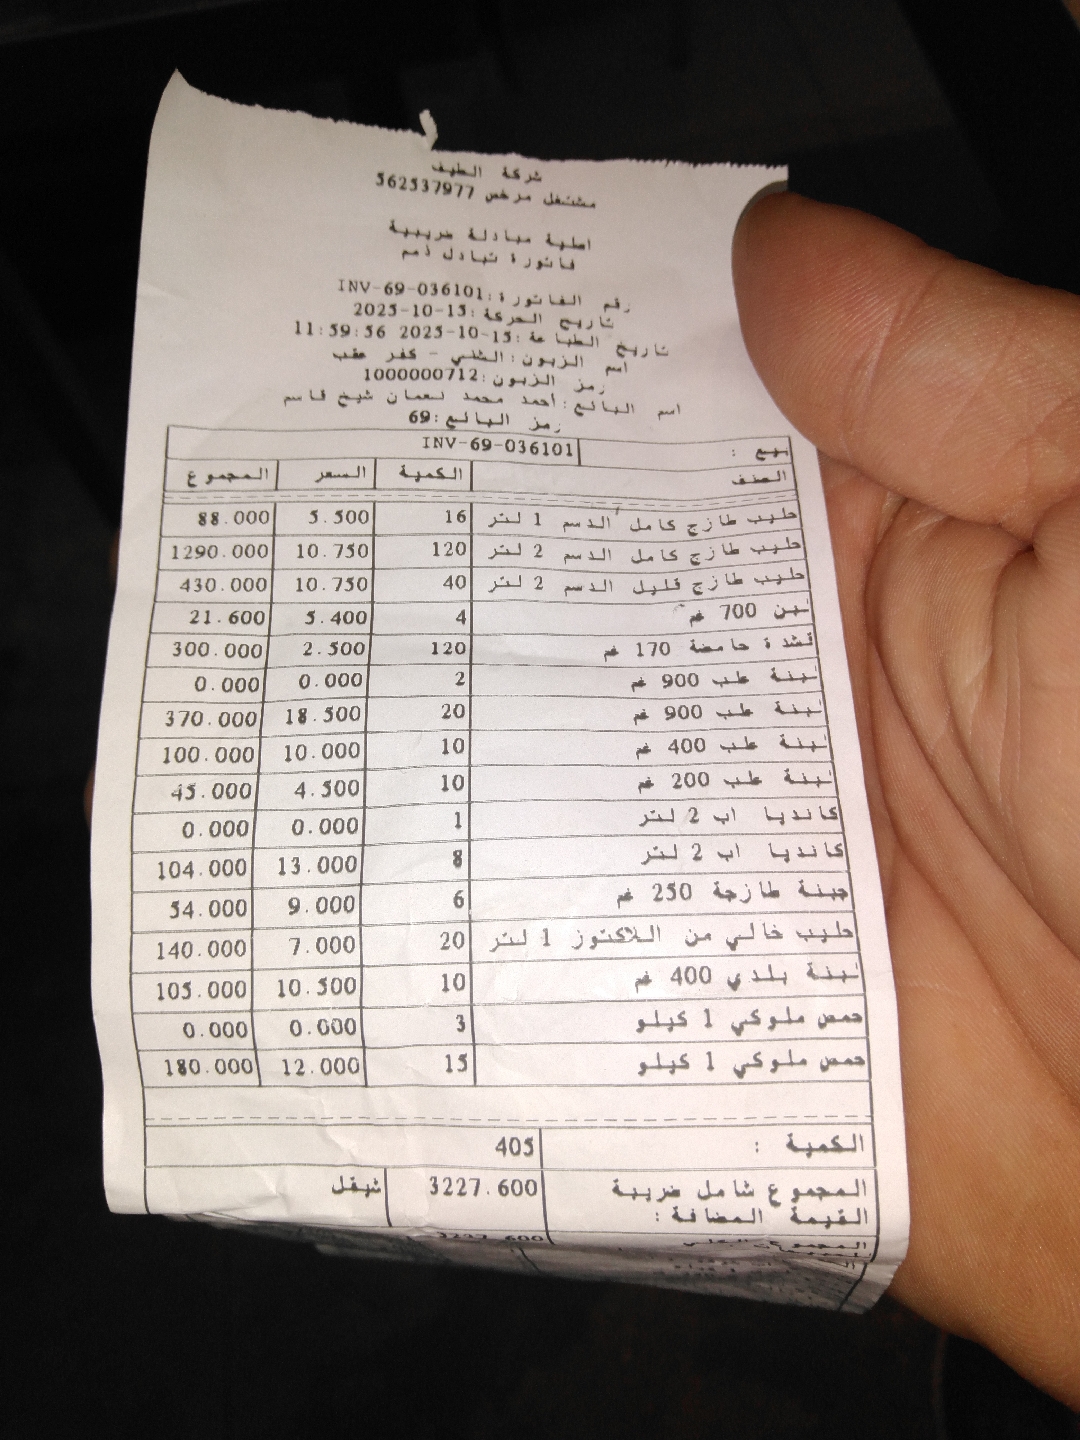 شركة الطيف
مشتغل مرخص 562537977
اطية مبادلة ضريبية
فاتورة تبادل ذمم
رقم الفاتورة: INV-69-036101
تاريخ الحركة: 2025-10-15
تاريخ الطباعة: 2025-10-15 11:59:56
اسم الزبون: الشني - كفر عقب
رمز الزبون: 1000000712
اسم البائع: أحمد محمد نعمان شيخ قاسم
رمز البائع: 69
بيع : INV-69-036101
الصنف الكمية السعر المجموع
حليب طازج كامل الدسم 1 لتر 16 5.500 88.000
حليب طازج كامل الدسم 2 لتر 120 10.750 1290.000
حليب طازج قليل الدسم 2 لتر 40 10.750 430.000
لبن 700 غم 4 5.400 21.600
قشدة حامضة 170 غم 120 2.500 300.000
لبنة علب 900 غم 2 0.000 0.000
لبنة علب 900 غم 20 18.500 370.000
لبنة علب 400 غم 10 10.000 100.000
لبنة علب 200 غم 10 4.500 45.000
كانديا اب 2 لتر 1 0.000 0.000
كانديا اب 2 لتر 8 13.000 104.000
جبنة طازجة 250 غم 6 9.000 54.000
حليب خالي من اللاكتوز 1 لتر 20 7.000 140.000
لبنة بلدي 400 غم 10 10.500 105.000
حمص ملوكي 1 كيلو 3 0.000 0.000
حمص ملوكي 1 كيلو 15 12.000 180.000
الكمية : 405
المجموع شامل ضريبة 3227.600 شيقل
القيمة المضافة :
المجموع 3227.600